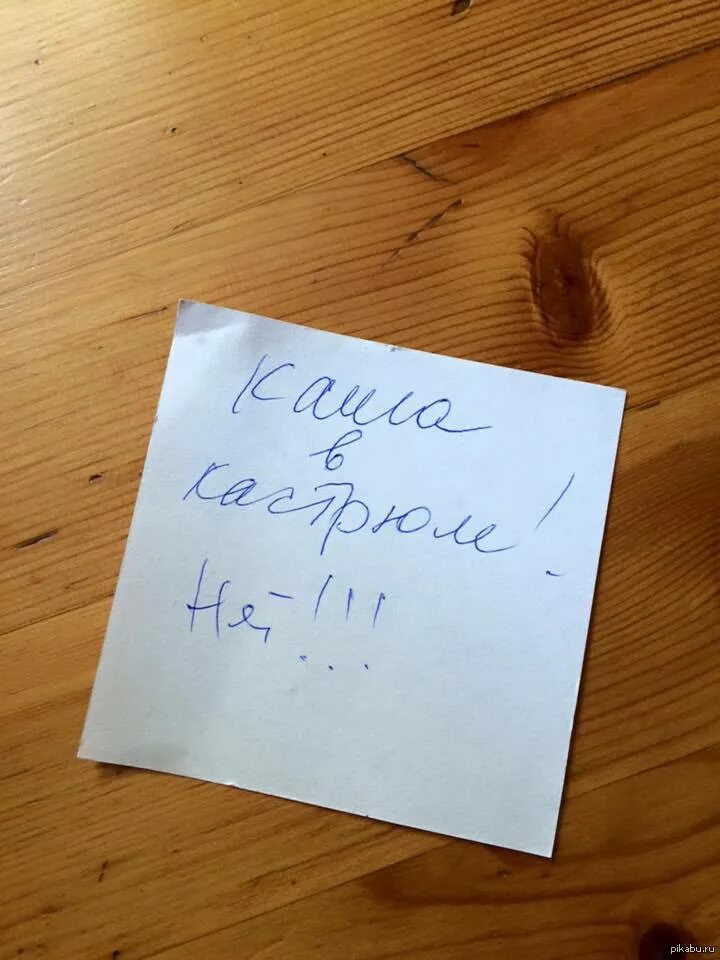 Каша
в
кастрюле!
Ней!!!
pikabu.ru